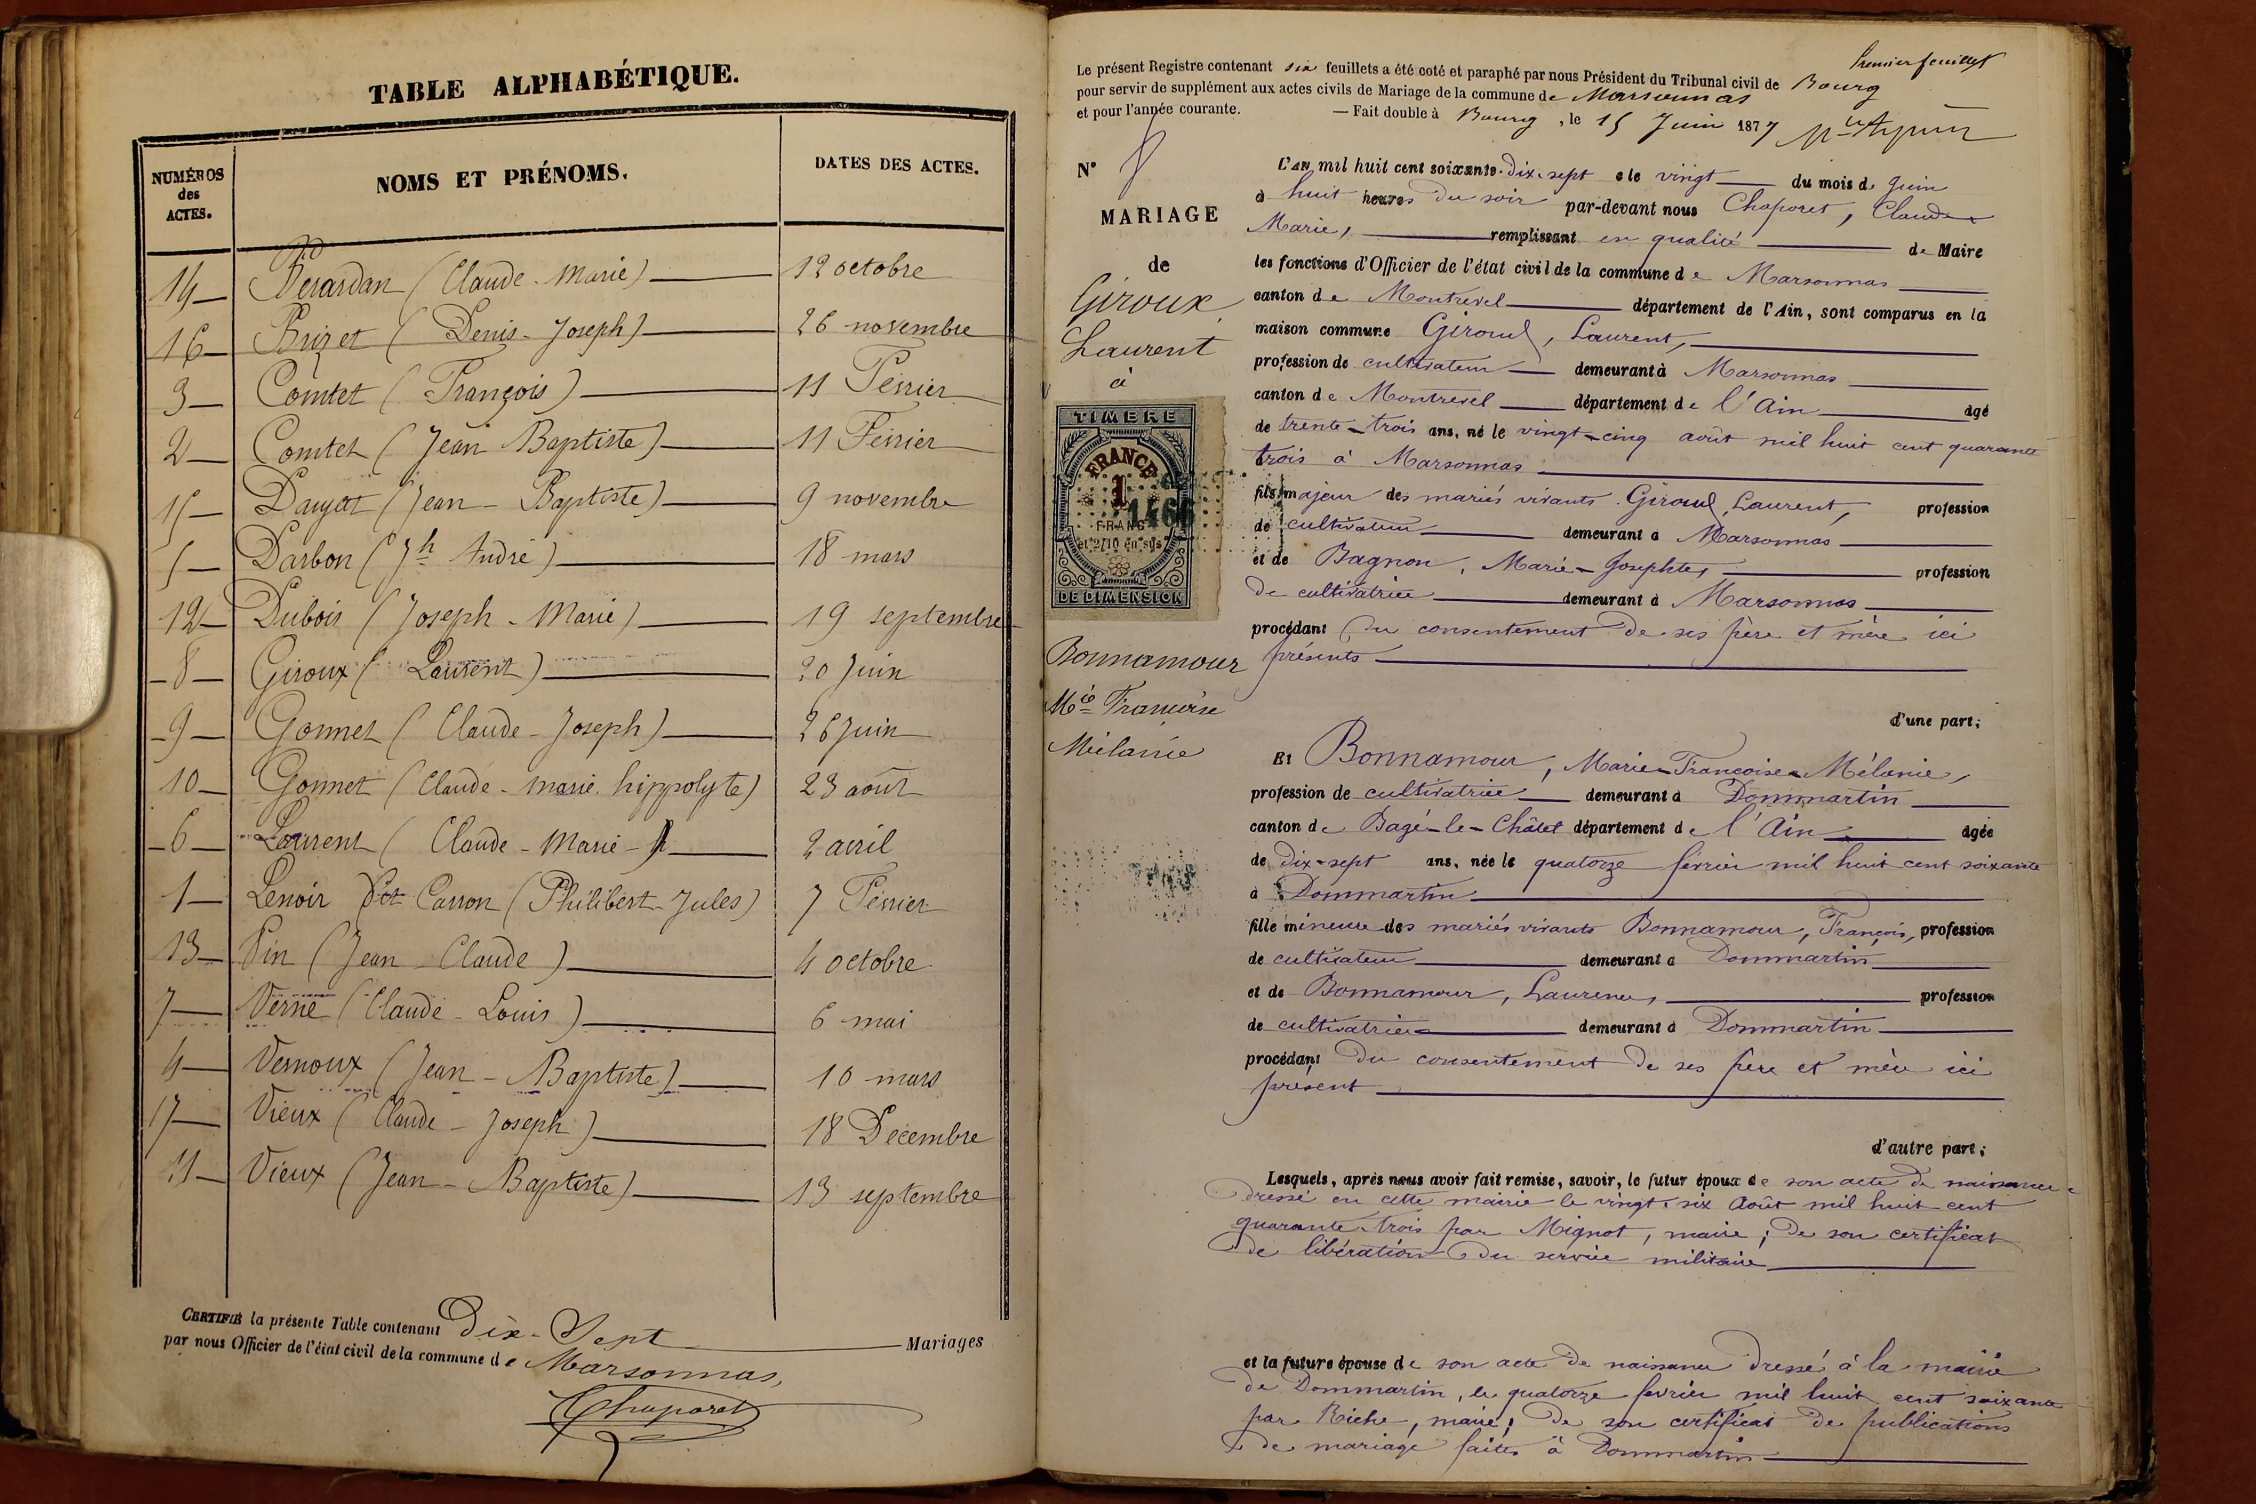 TABLE ALPHABÉTIQUE.
NUMÉROS des ACTES. NOMS ET PRÉNOMS. DATES DES ACTES.
14 Berardan (Claude-Marie) 12 octobre
16 Brizet (Denis-Joseph) 26 novembre
3 Comtet (François) 11 Février
2 Comtet (Jean Baptiste) 11 Février
15 (Jean-Baptiste) 9 novembre
5 Darbon (Jh André) 18 mars
12 Dubois (Joseph-Marie) 19 septembre
8 Giroux (Laurent) 20 Juin
9 Gonnet (Claude-Joseph) 26 Juin
10 Gonnet (Claude-marie hippolyte) 23 août
6 Laurent (Claude-Marie- 2 avril
1 Lenoir dit Carron (Philibert-Jules) 7 Février
13 Pin (Jean Claude) 4 octobre
7 Verne (Claude-Louis) 6 mai
4 Vernoux (Jean-Baptiste) 10 mars
17 Vieux (Claude-Joseph) 18 Décembre
11 Vieux (Jean-Baptiste) 13 septembre
CERTIFIÉ la présente Table contenant Dix-Sept Mariages
par nous Officier de l'état civil de la commune de Marsonnas,
Chaparet
Premier feuillet
Le présent Registre contenant six feuillets a été coté et paraphé par nous Président du Tribunal civil de Bourg
pour servir de supplément aux actes civils de Mariage de la commune de Marsonnas
et pour l'année courante. — Fait double à Bourg, le 15 Juin 1877
N° 8
MARIAGE
de
Giroux
Laurent
à
TIMBRE
FRANCE
1
FRANC
et 2/10 en sus
DE DIMENSION
Bonnamour
Mie Francoise
Mélanie
L'an mil huit cent soixante-dix-sept e le vingt du mois de Juin
à huit heures du soir par-devant nous Chaparet, Claude
Marie, remplissant en qualité de Maire
les fonctions d'Officier de l'état civil de la commune de Marsonnas
canton de Montrevel département de l'Ain, sont comparus en la
maison commune Giroud, Laurent,
profession de cultivateur demeurant à Marsonnas
canton de Montrevel département de l'Ain âgé
de trente-trois ans, né le vingt-cinq août mil huit cent quarante
trois à Marsonnas
fils majeur des mariés vivants Giroud, Laurent, profession
de cultivateur demeurant à Marsonnas
et de Bagnon, Marie-Josephte, profession
de cultivatrice demeurant à Marsonnas
procédant du consentement de ses père et mère ici
présents
d'une part;
Et Bonnamour, Marie-Françoise-Mélanie,
profession de cultivatrice demeurant à Dommartin
canton de Bagé-le-Châtel département de l'Ain âgée
de dix-sept ans, née le quatorze février mil huit cent soixante
à Dommartin
fille mineure des mariés vivants Bonnamour, François, profession
de cultivateur demeurant à Dommartin
et de Bonnamour, Laurence, profession
de cultivatrice demeurant à Dommartin
procédant du consentement de ses père et mère ici
présent
d'autre part;
Lesquels, après nous avoir fait remise, savoir, le futur époux de son acte de naissance
dressé en cette mairie le vingt-six Août mil huit cent
quarante-trois par Mignot, maire; de son certificat
de libération du service militaire
et la future épouse de son acte de naissance dressé à la mairie
de Dommartin, le quatorze février mil huit cent soixante
par Riche, maire; de son certificat de publications
de mariage faites à Dommartin